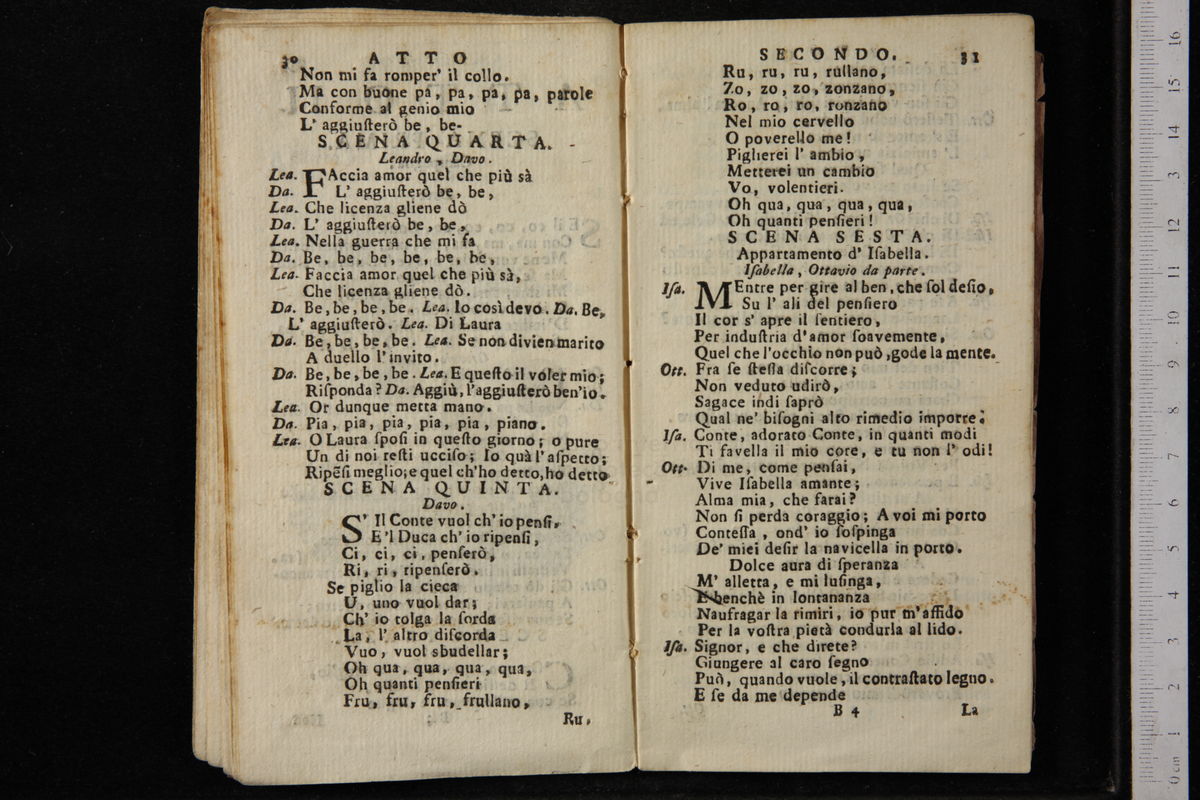 30 ATTO
Non mi fa romper' il collo.
Ma con buone pa, pa, pa, pa, parole
Conforme al genio mio
L' aggiuſterò be, be-
SCENA QUARTA.
Leandro, Davo.
Lea. FAccia amor quel che più sà
Da. L' aggiuſterò be, be,
Lea. Che licenza gliene dò
Da. L' aggiuſterò be, be,
Lea. Nella guerra che mi fa
Da. Be, be, be, be, be, be,
Lea. Faccia amor quel che più sà,
Che licenza gliene dò.
Da. Be, be, be, be. Lea. Io così devo. Da. Be,
L' aggiuſterò. Lea. Di Laura
Da. Be, be, be, be. Lea. Se non divien marito
A duello l'invito.
Da. Be, be, be, be. Lea. E queſto il voler mio;
Riſponda? Da. Aggiù, l'aggiuſterò ben'io.
Lea. Or dunque metta mano.
Da. Pia, pia, pia, pia, pia, piano.
Lea. O Laura ſpoſi in queſto giorno; o pure
Un di noi reſti ucciſo; Io quà l'aſpetto;
Ripēſi meglio; e quel ch'ho detto, ho detto
SCENA QUINTA.
Davo.
S' Il Conte vuol ch' io penſi,
E'l Duca ch' io ripenſi,
Ci, ci, ci, penſerò,
Ri, ri, ripenſerò.
Se piglio la cieca
U, uno vuol dar;
Ch' io tolga la ſorda
La, l' altro diſcorda
Vuo, vuol sbudellar;
Oh qua, qua, qua, qua,
Oh quanti penſieri
Fru, fru, fru, frullano,
Ru,
SECONDO. 31
Ru, ru, ru, rullano,
Zo, zo, zo, zonzano,
Ro, ro, ro, ronzano
Nel mio cervello
O poverello me!
Piglierei l' ambio,
Metterei un cambio
Vo, volentieri.
Oh qua, qua, qua, qua,
Oh quanti penſieri!
SCENA SESTA.
Appartamento d' Iſabella.
Iſabella, Ottavio da parte.
Iſa. MEntre per gire al ben, che ſol deſio,
Su l' ali del penſiero
Il cor s' apre il ſentiero,
Per induſtria d'amor ſoavemente,
Quel che l'occhio non può, gode la mente.
Ott. Fra ſe ſteſſa diſcorre;
Non veduto udirò,
Sagace indi ſaprò
Qual ne' biſogni alto rimedio imporre.
Iſa. Conte, adorato Conte, in quanti modi
Ti favella il mio core, e tu non l' odi!
Ott. Di me, come penſai,
Vive Iſabella amante;
Alma mia, che farai?
Non ſi perda coraggio; A voi mi porto
Conteſſa, ond' io ſoſpinga
De' miei deſir la navicella in porto.
Dolce aura di ſperanza
M' alletta, e mi luſinga,
E benchè in lontananza
Naufragar la rimiri, io pur m'affido
Per la voſtra pietà condurla al lido.
Iſa. Signor, e che direte?
Giungere al caro ſegno
Può, quando vuole, il contraſtato legno.
E ſe da me depende
B 4 La
16
15
14
13
12
11
10
9
8
7
6
5
4
3
2
1
0 cm